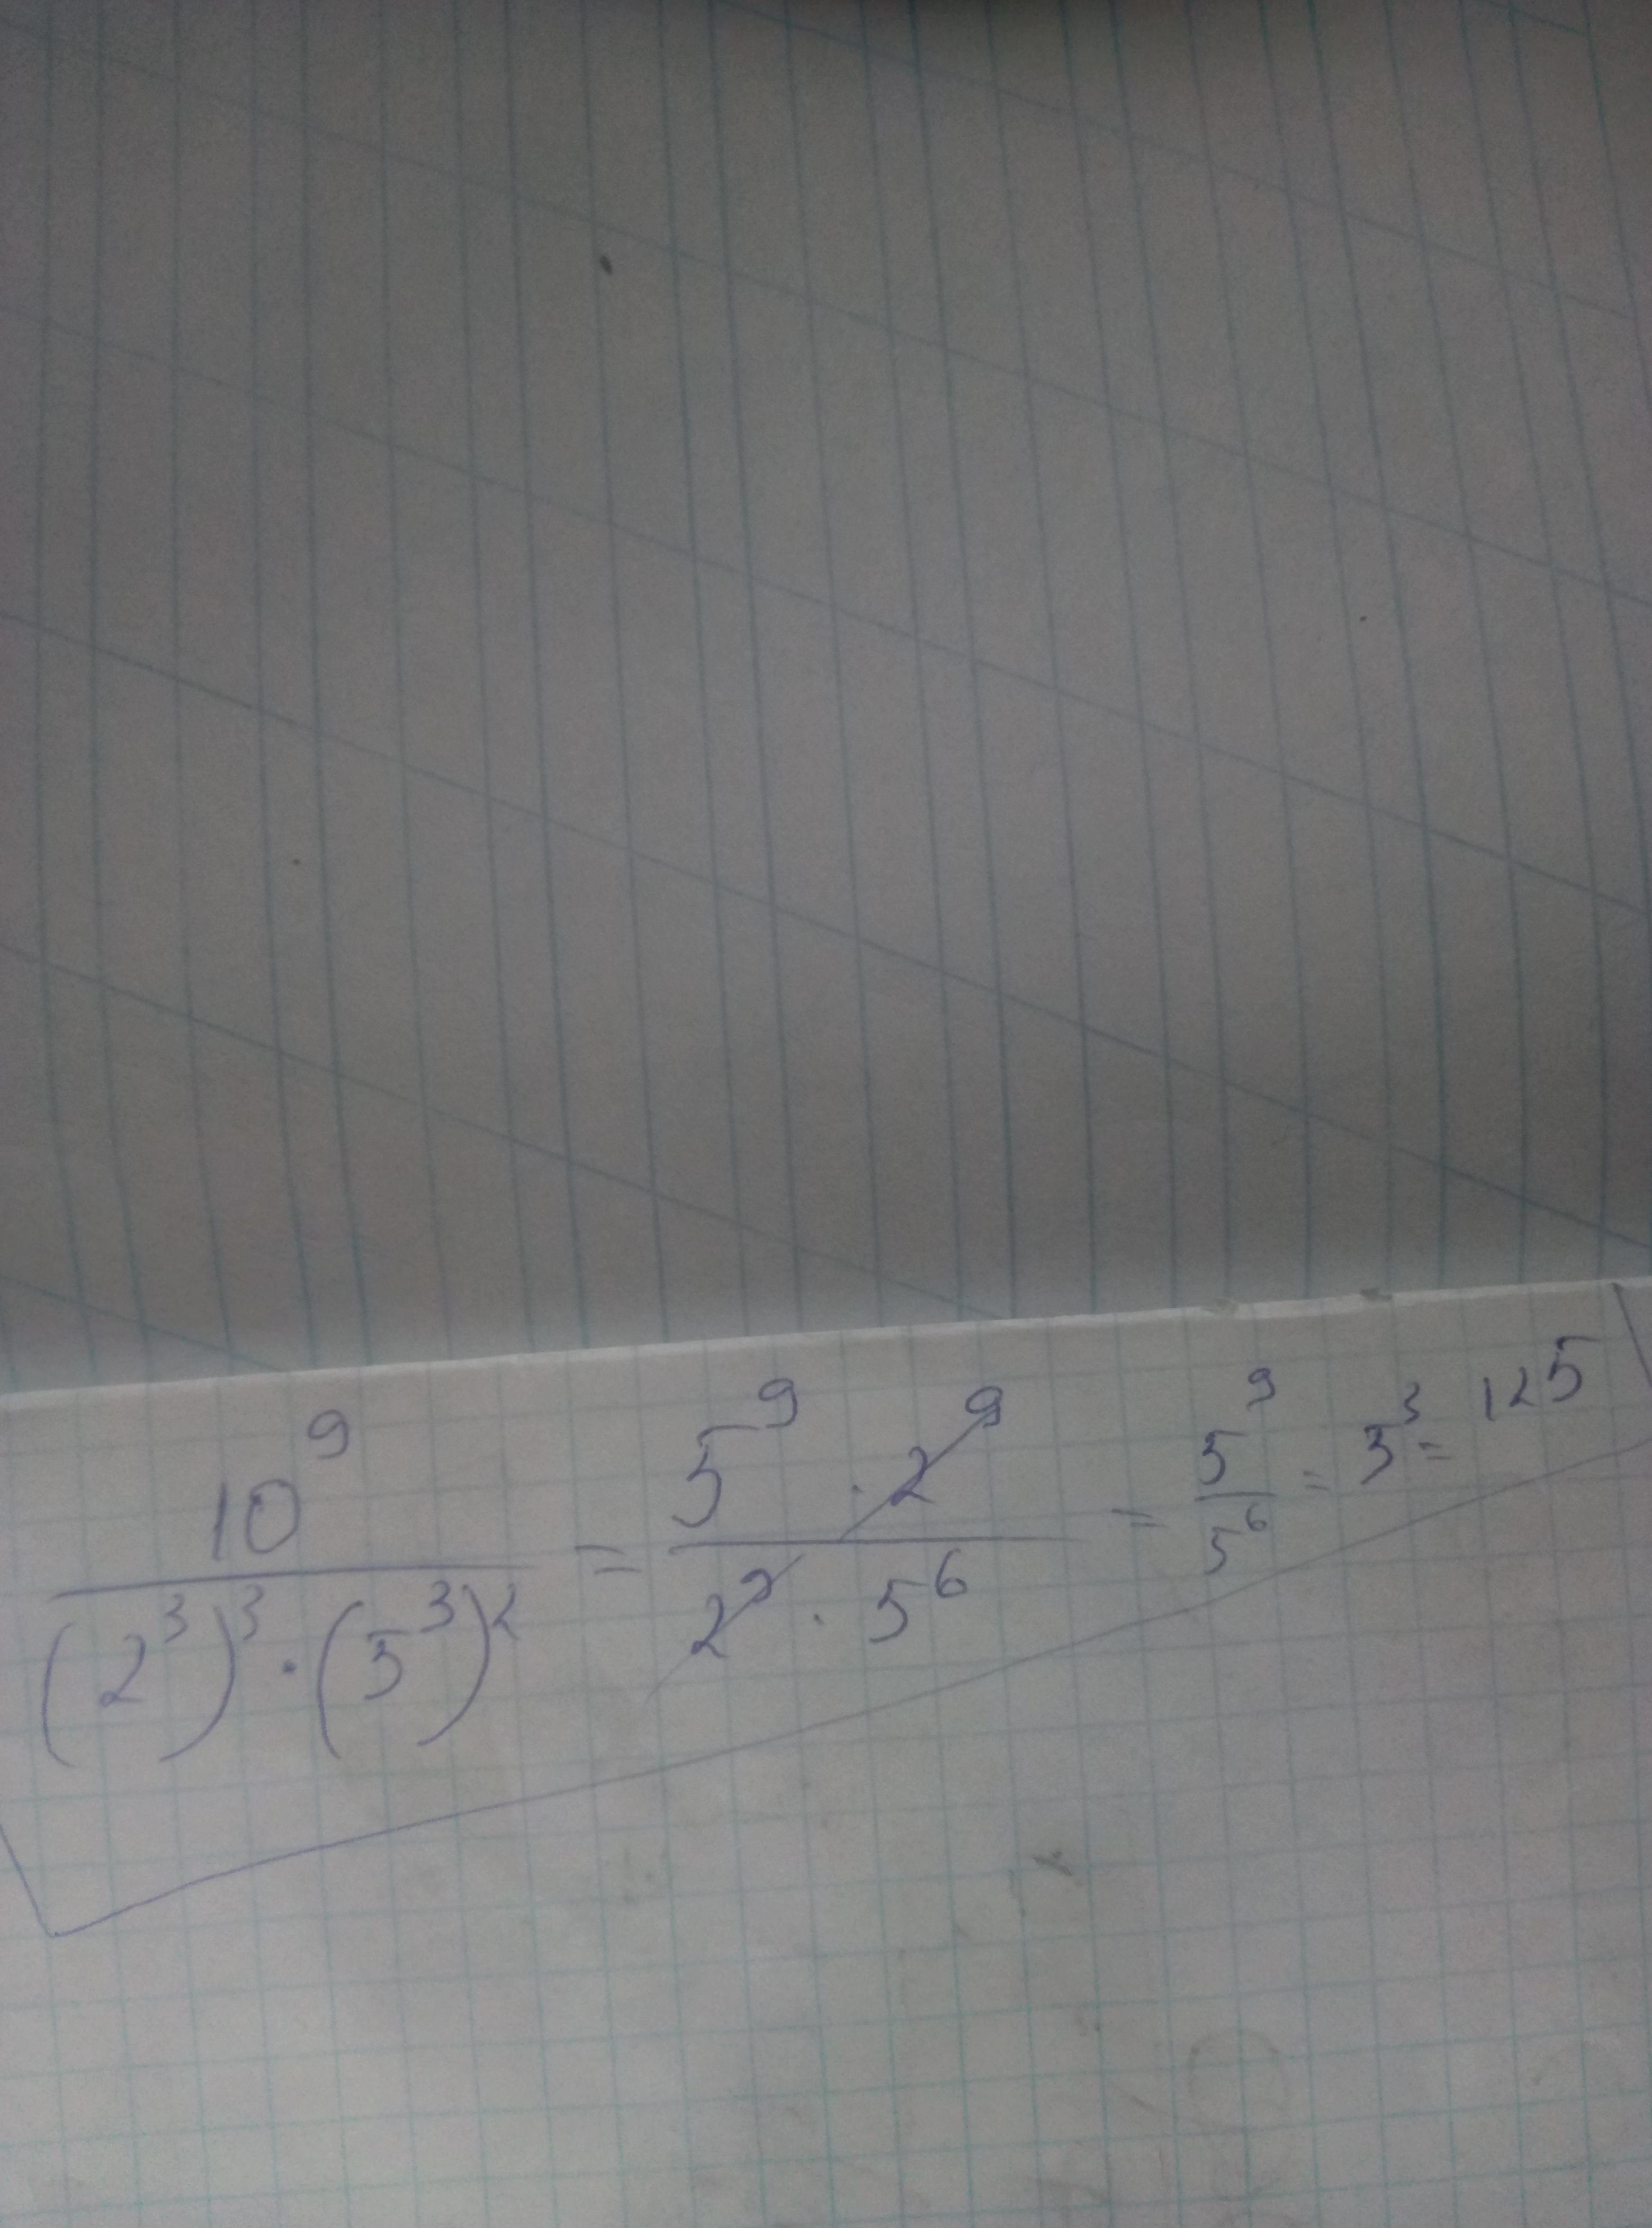 10⁹/((2³)³ · (5³)²) = (5⁹ · 2⁹)/(2⁹ · 5⁶) = 5⁹/5⁶ = 5³ = 125